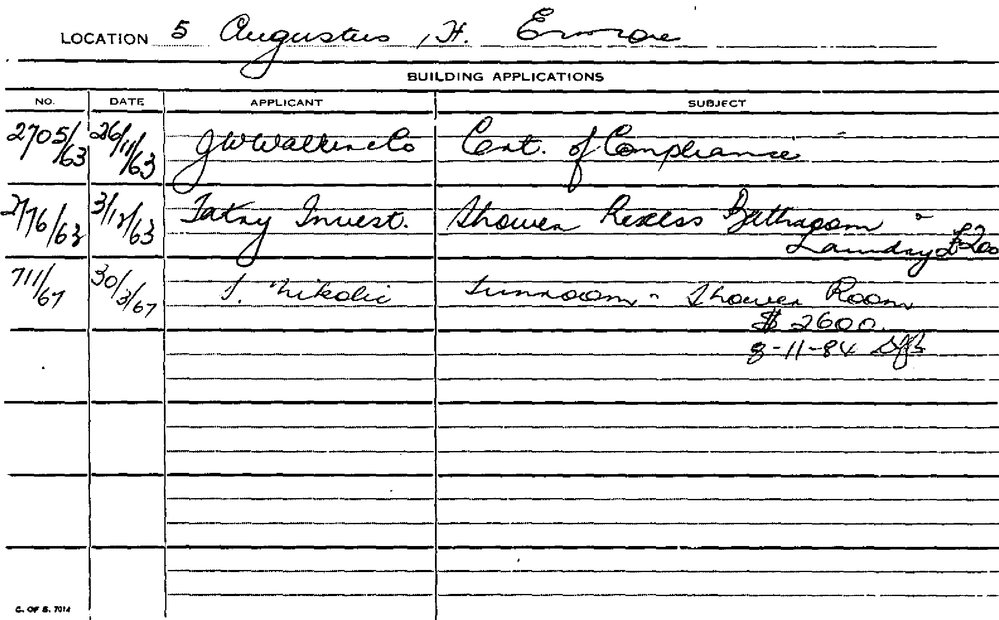 LOCATION 5 Augustus St. Enmore
BUILDING APPLICATIONS
NO. DATE APPLICANT SUBJECT
2705/63 26/11/63 J W Walker & Co Cert. of Compliance
2776/63 3/12/63 Invest. Shower Recess Bathroom &
Laundry £200
711/67 30/3/67 Nikolic Sunroom - Shower Room
$ 2600.
8-11-84
C. OF S. 7014